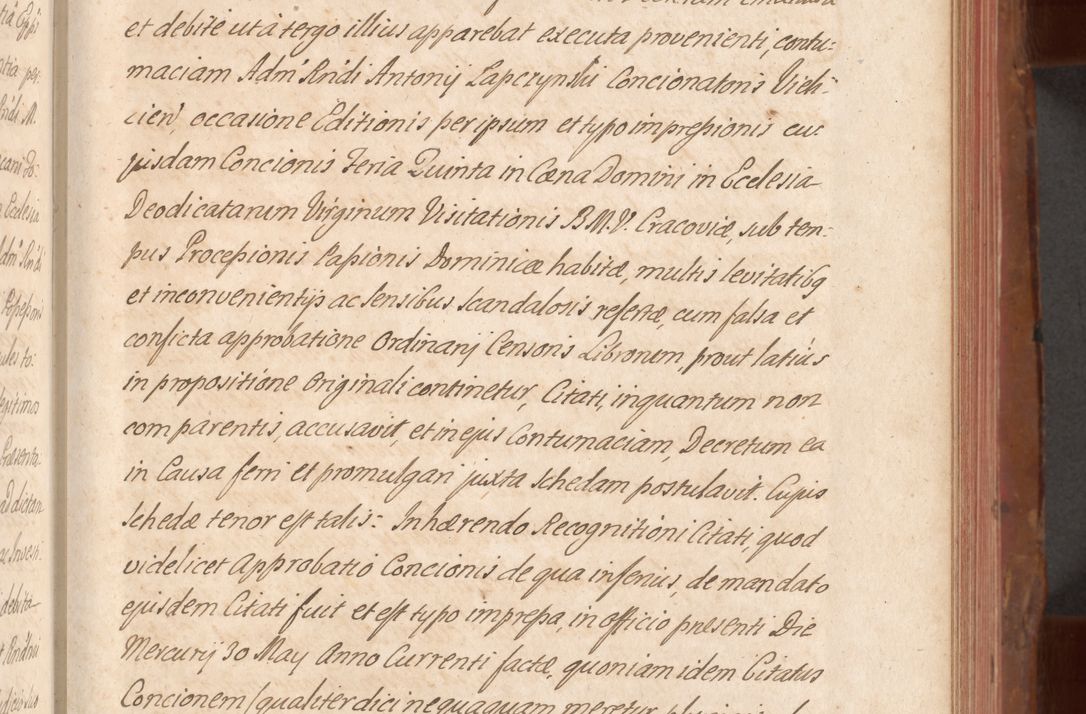 et debite ut à tergo illius apparebat executa provenienti, contu:
maciam Adm Rndi Antonij Lapczynski Concionatoris Vieli:
cien, occasione Editionis per ipsum et typo impressionis cu:
jusdam Concionis Feria Quinta in Cœna Domini in Ecclesia
Deo dicatarum Virginum Visitationis B.M.V. Cracoviæ, sub tem:
pus Processionis Passionis Dominicæ habitæ, multis levitatibq
et inconvenientijs ac sensibus scandalosis refertæ, cum falsa et
conficta approbatione Ordinarij Censoris Librorum, prout latius
in propositione Originali continetur, Citati, inquantum non
comparentis, accusavit, et in ejus Contumaciam, Decretum ea
in Causa ferri et promulgari juxta schedam postulavit. Cujus
schedæ tenor est talis: Inhærendo Recognitioni Citati, quod
videlicet Approbatio Concionis de qua inferius, de mandato
ejusdem Citati fuit et est typo impressa, in officio præsenti Die
Mercurij 30 May Anno Currenti factæ, quoniam idem Citatus
Concionem /qualiter dici nequaquam meretur
tiâ
atia per:
Rndi M.
Ecclesia
Adm Rndi
legitimos
Præsenta:
ad dictam
debita